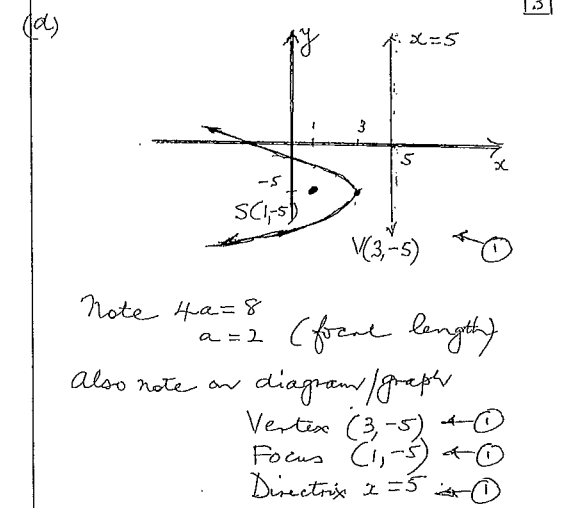 3
(d)
y
x=5
1
3
5
x
-5
S(1,-5)
V(3,-5) ①
Note 4a=8
a=2 (focal length)
Also note on diagram/graph
Vertex (3,-5) ←①
Focus (1,-5) ←①
Directrix x=5 ←①